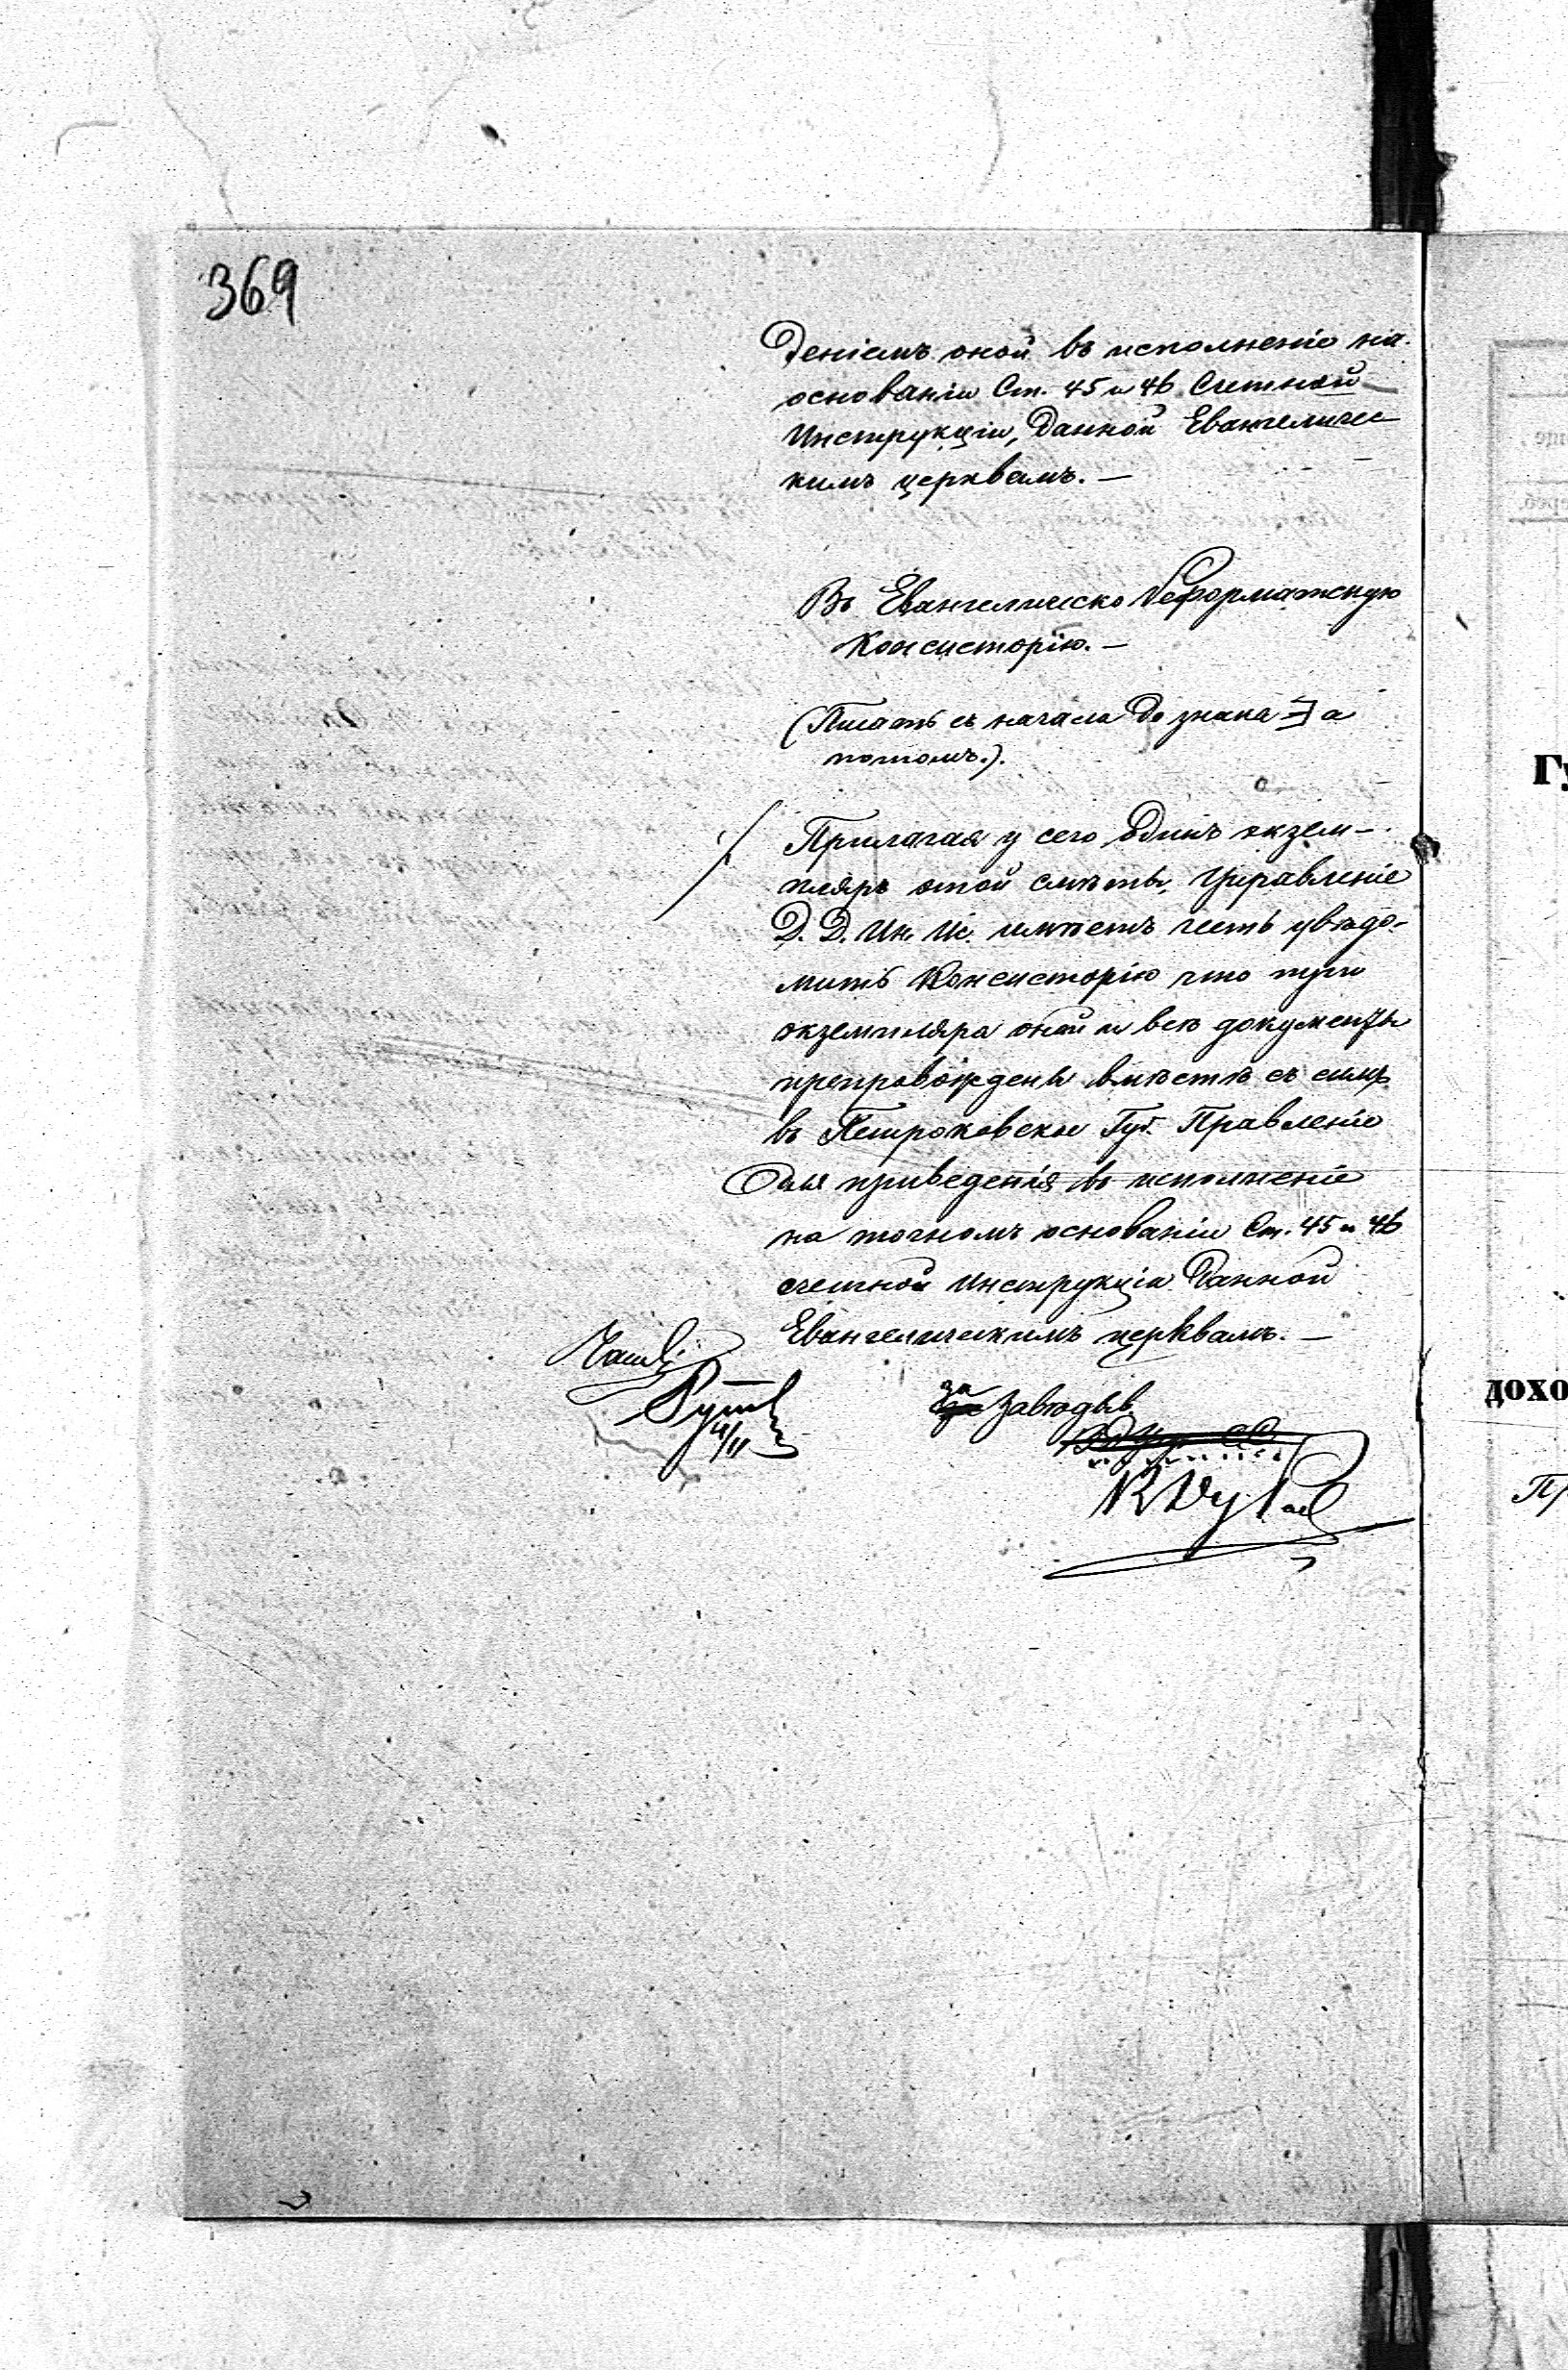 369
деніемъ оной въ исполненіе на
основаніи Ст. 45 и 46 Счетной
Инструкціи, данной Евангеличес
кимъ церквамъ. —
Въ Евангелическо Реформатскую
Консисторію. —
(Писать съ начала до знака =] а
потомъ.).
Прилагая у сего одинъ экзем-
пляръ этой смѣты, Управленіе
Д. Д. Ин. Ис. имѣетъ честь увѣдо-
мить Консисторію что три
экземпляра оной и всѣ документы
препровождены вмѣстѣ съ симъ
въ Петроковское Губ. Правленіе
для приведенія въ исполненіе
на точномъ основаніи Ст. 45 и 46
счетной Инструкціи данной
Евангелическимъ церквамъ. —
за Завѣдыв.
Гу
дохо
Пр